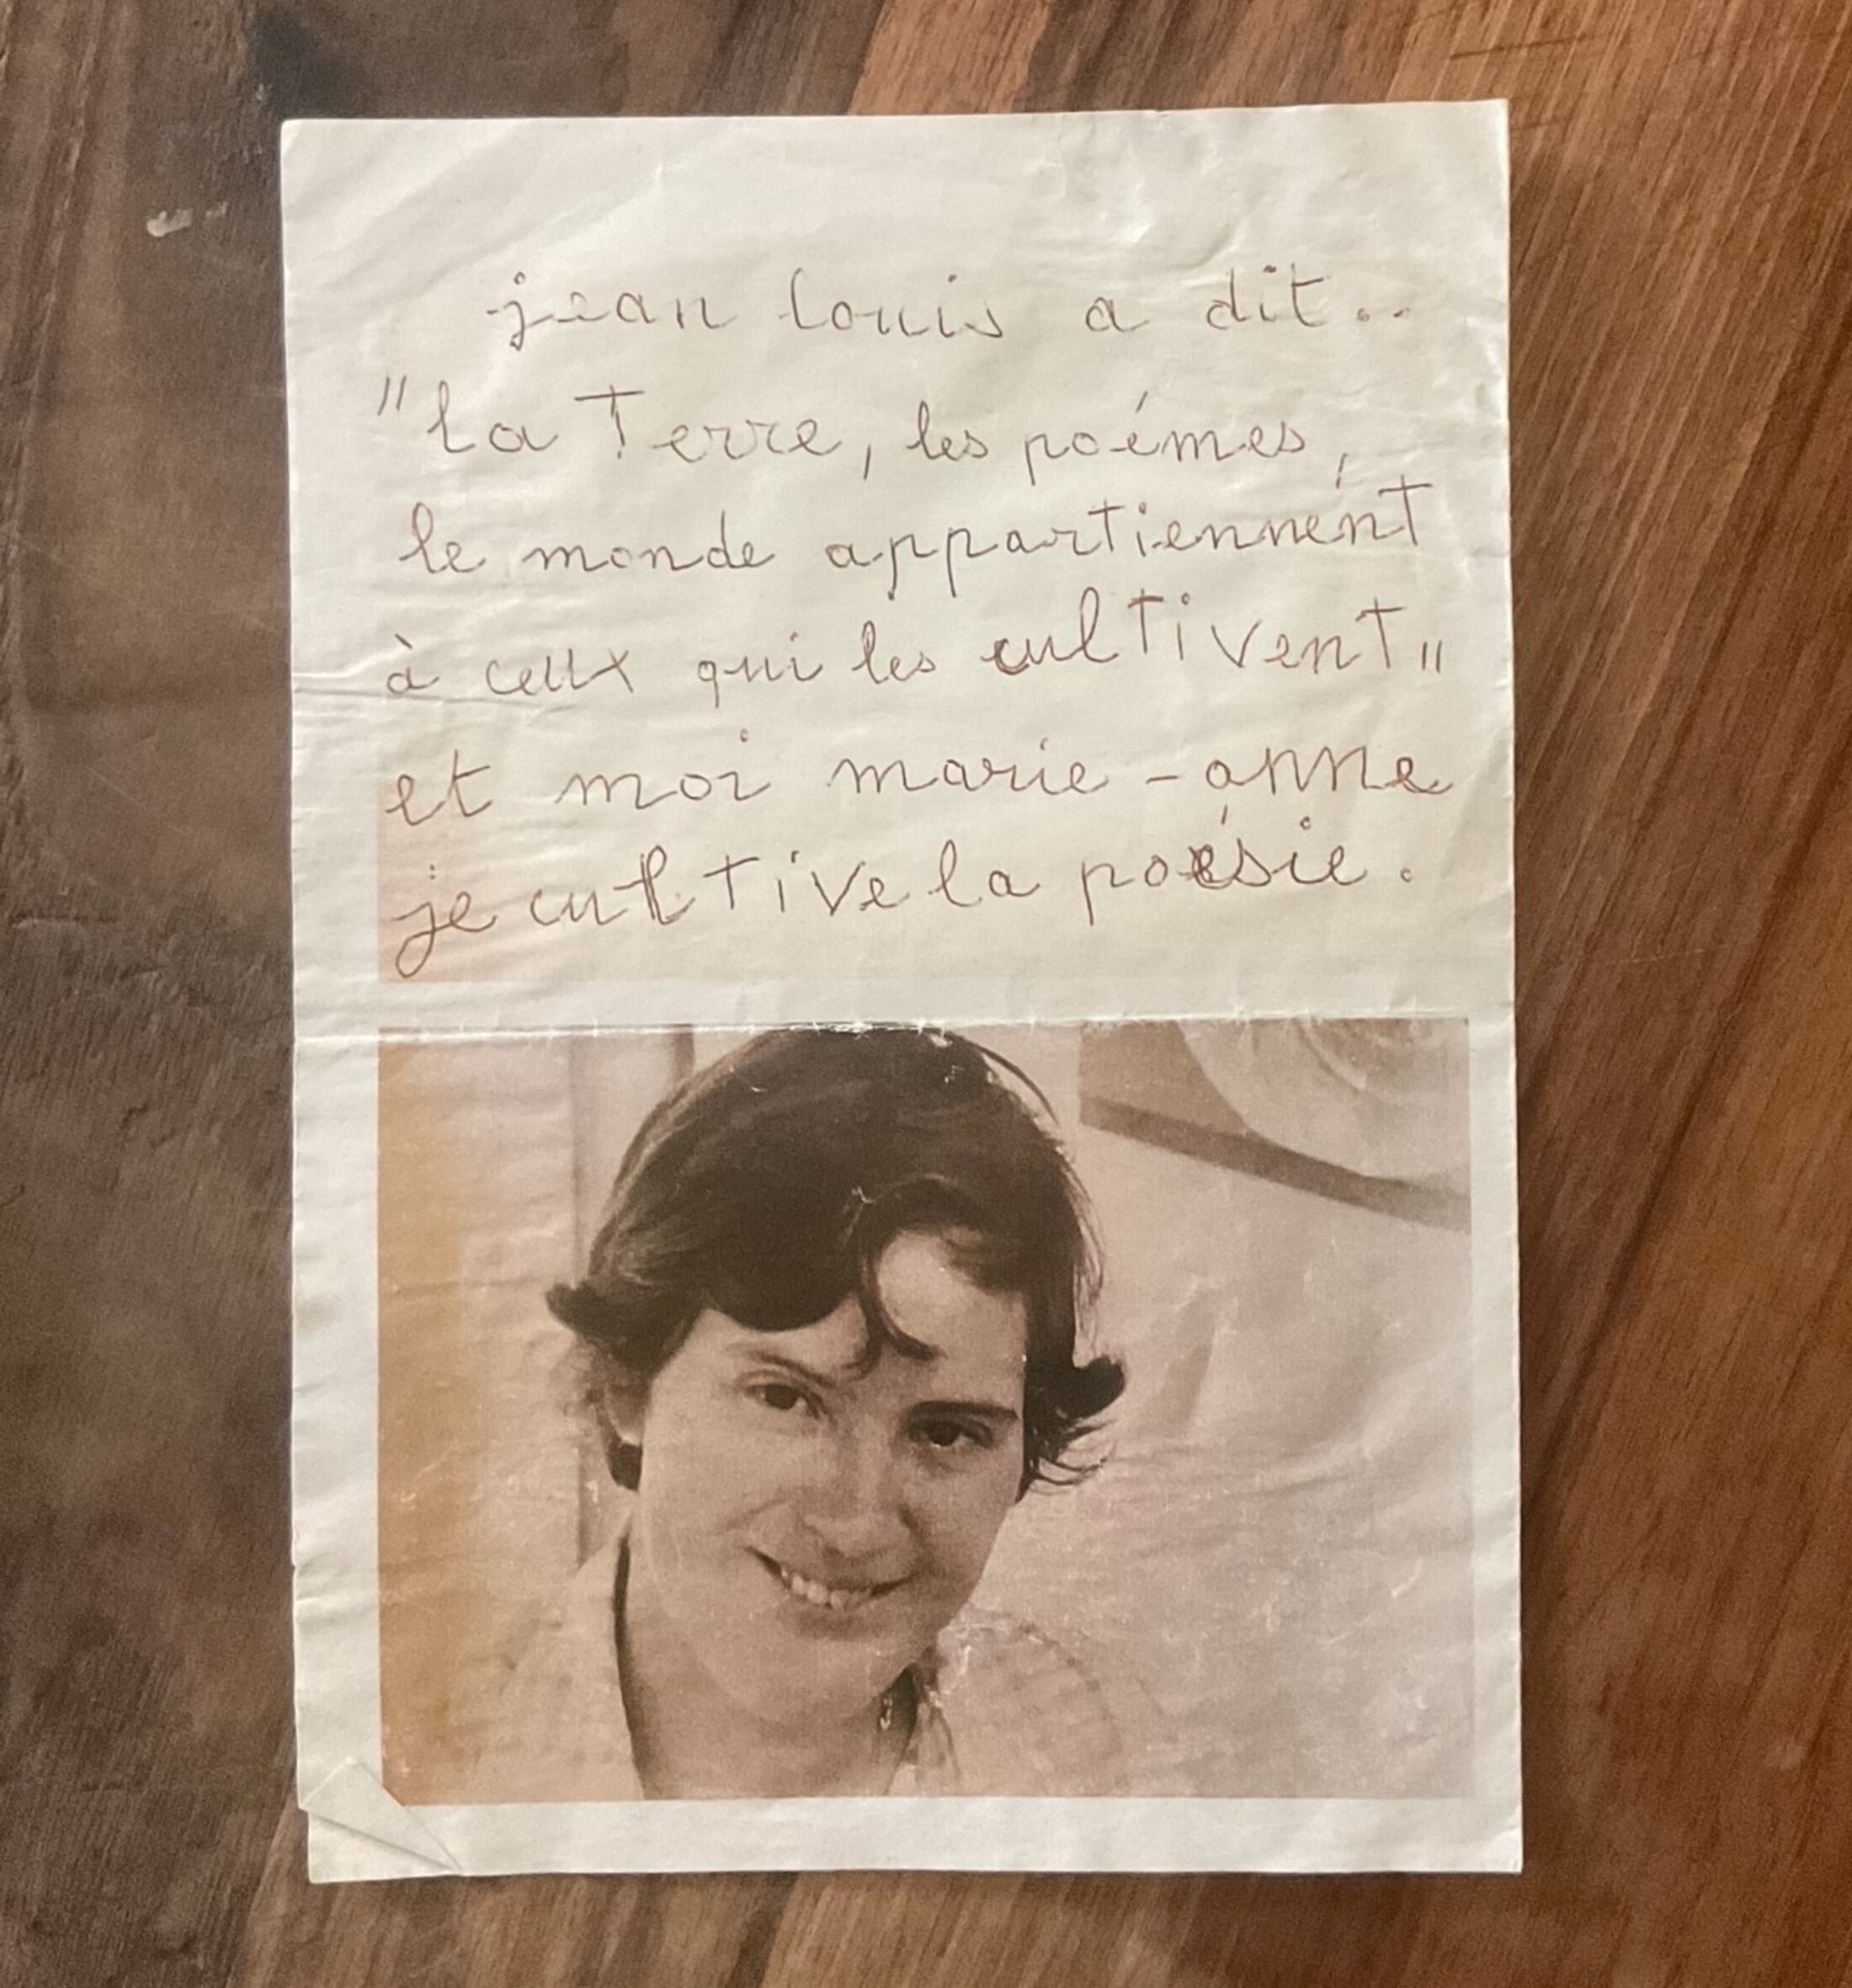 jean louis a dit..
"la Terre, les poémes,
le monde appartiennent
à ceux qui les cultivent"
et moi marie-anne
je cultive la poésie.